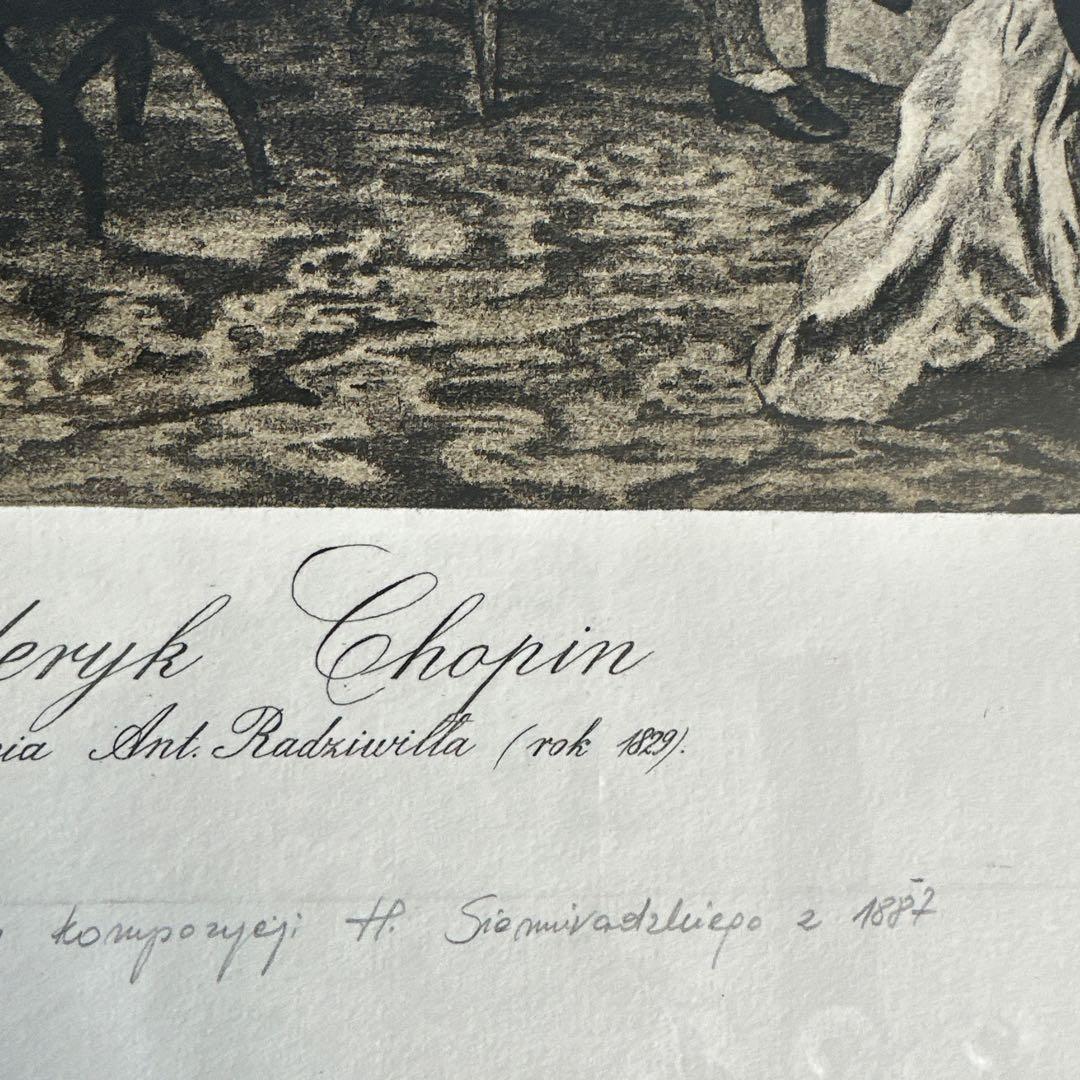 deryk Chopin
nia Ant. Radziwiłła (rok 1829).
kompozycji H. Siemiradzkiego z 1887